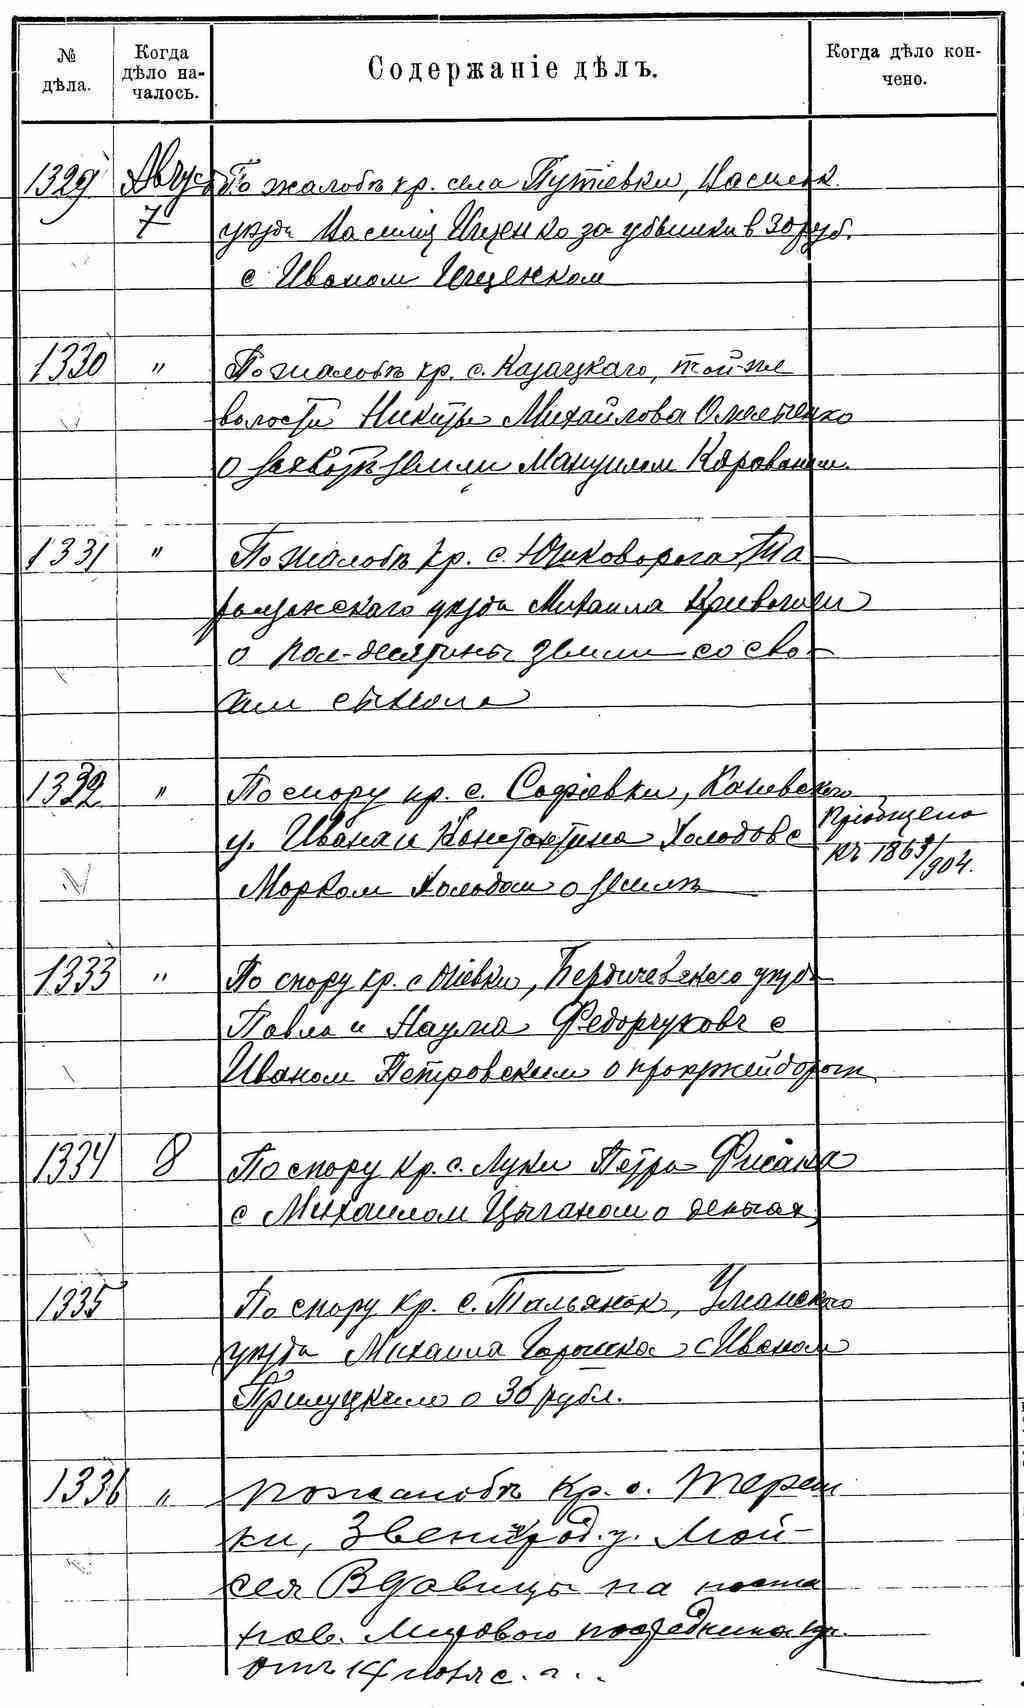 № дѣла.
Когда дѣло началось.
Содержаніе дѣлъ.
Когда дѣло кончено.
1329 Август 7 По жалобѣ кр. села Путіевки, Василек.
уѣзда Василия Ищенко за убытки в 30 руб.
с Иваном Ищенком
1330 " По жалобѣ кр. с. Казацкаго, той-же
волости Никиты Михайлова Омельченко
о захватѣ земли Мануилом Карованом.
1331 " По жалобѣ кр. с. Юшковорога, Та-
ращанскаго уѣзда Михаила
о пол-десятины земли со сво-
им сыном
1332 " По спору кр. с. Софіевки, Каневскаго
у. Ивана и Константина Холодов с
Марком Холодом о землѣ
Пріобщено
къ 1863/904.
1333 " По спору кр. с. Бердичевскаго уѣзда
Павла и Наума Федорчуковъ с
Иваном Петровским о проѣзжей дорогѣ
1334 8 По спору кр. с. Луки Петра
с Михаилом Цыганом о деньгах
1335 По спору кр. с. Тальянок, Уманскаго
уѣзда Михаила с Иваном
Прилуцким о 30 рубл.
1336 " По жалобѣ кр. с.
ки, Звенигород. у. Мой-
сея Вдовицы на поста
нов. Мирового посредника
отъ 14 с. г.